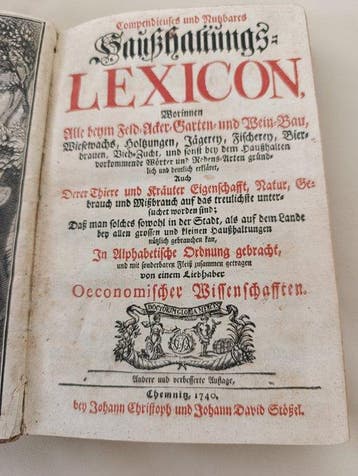 Compendieuses und Nutzbares
Haußhaltungs-
LEXICON,
Worinnen
Alle beym Feld-Acker-Garten-und Wein-Bau,
Wiesewachs, Holtzungen, Jägerey, Fischerey, Bier-
brauen, Vieh-Zucht, und sonst bey dem Haußhalten
vorkommende Wörter und Redens-Arten gründ-
lich und deutlich erkläret,
Auch
Derer Thiere und Kräuter Eigenschafft, Natur, Ge-
brauch und Mißbrauch auf das treulichste unter-
suchet worden sind;
Daß man solches sowohl in der Stadt, als auf dem Lande
bey allen grossen und kleinen Haußhaltungen
nützlich gebrauchen kan,
In Alphabetische Ordnung gebracht,
und mit sonderbaren Fleiß zusammen getragen
von einem Liebhaber
Oeconomischer Wissenschafften.
Andere und verbesserte Auflage,
Chemnitz, 1740.
bey Johann Christoph und Johann David Stößel.